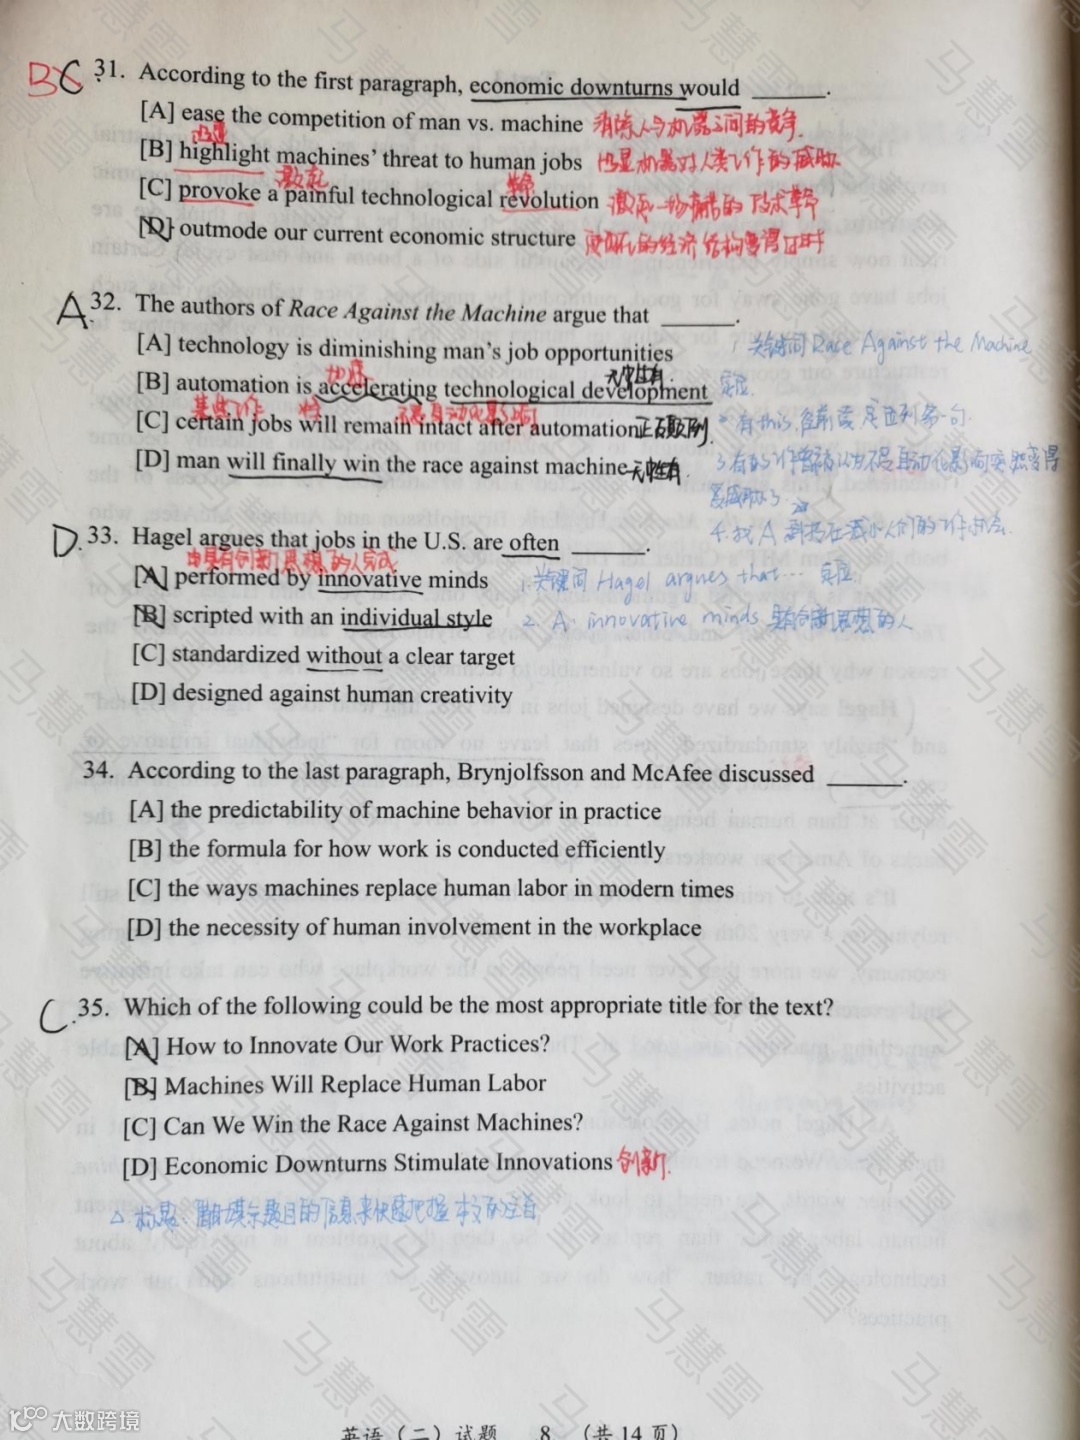 BC 31. According to the first paragraph, economic downturns would ______.
[A] ease the competition of man vs. machine 消除人与机器之间的竞争.
凸显
[B] highlight machines' threat to human jobs 凸显机器对人类工作的威胁
激起 革命
[C] provoke a painful technological revolution 激起一场痛苦的技术革命
[D] outmode our current economic structure 使现在的经济结构变得过时
A. 32. The authors of Race Against the Machine argue that ______.
[A] technology is diminishing man's job opportunities
1. 关键词 Race Against the Machine
加速 无中生有.
[B] automation is accelerating technological development
定位.
某些工作 自动化
[C] certain jobs will remain intact after automation 正反颠倒.
[D] man will finally win the race against machine 无中生有.
4. 找 A
D. 33. Hagel argues that jobs in the U.S. are often ______.
由具有创新思想的人完成
[A] performed by innovative minds
1. 关键词 Hagel argues that... 定位
[B] scripted with an individual style
2. A. innovative minds 具有创新思想的人
[C] standardized without a clear target
[D] designed against human creativity
34. According to the last paragraph, Brynjolfsson and McAfee discussed ______.
[A] the predictability of machine behavior in practice
[B] the formula for how work is conducted efficiently
[C] the ways machines replace human labor in modern times
[D] the necessity of human involvement in the workplace
C. 35. Which of the following could be the most appropriate title for the text?
[A] How to Innovate Our Work Practices?
[B] Machines Will Replace Human Labor
[C] Can We Win the Race Against Machines?
[D] Economic Downturns Stimulate Innovations 创新.
英语（二）试题 8 （共14页）
大数跨境
马慧雪